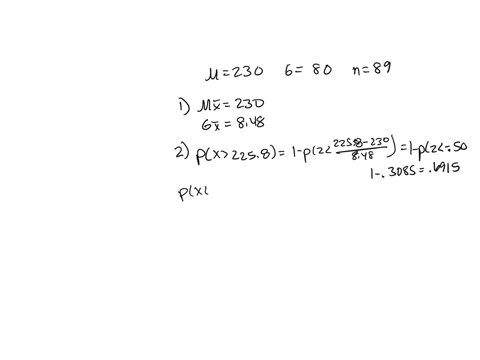 μ=230 σ= 80 n=89
1) μx̄=230
σx̄=8.48
2) p(x>225.8)=1-p(z<(225.8-230)/8.48)=1-p(z<-.50
1-.3085=.6915
p(x<